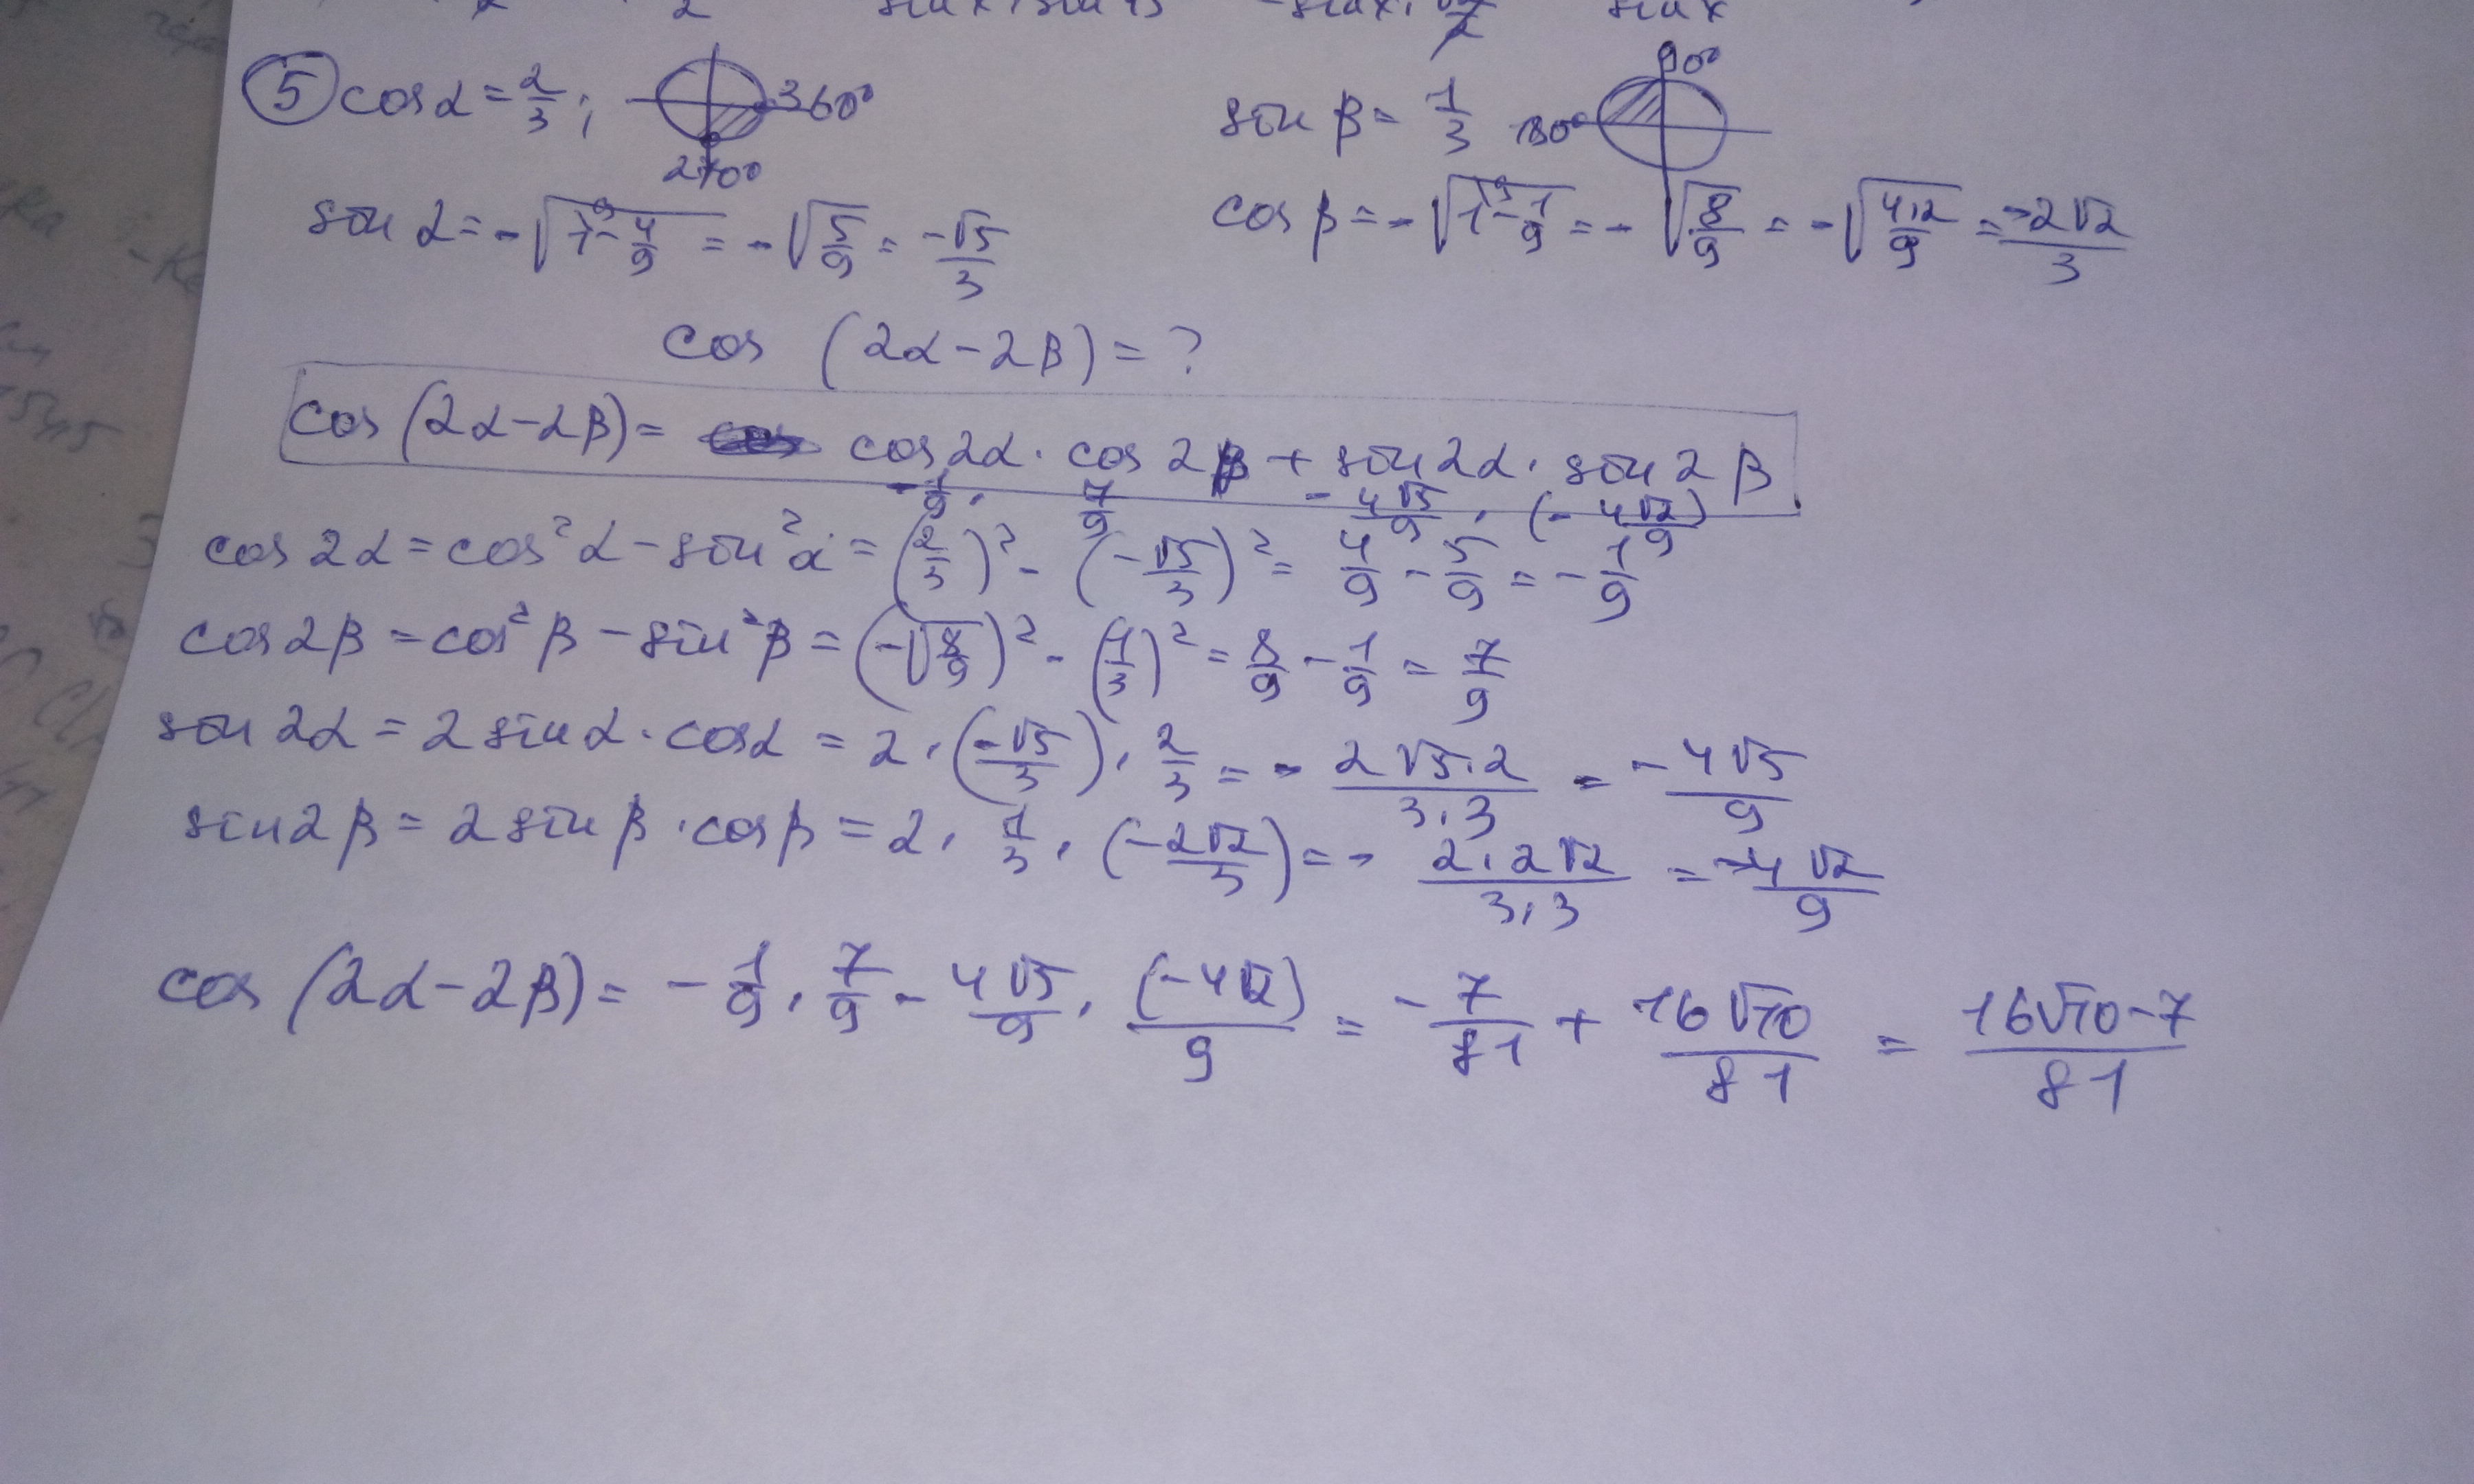 sin x
⑤ cos α = 2/3 ; 360° 270° sin β = 1/3 180° 90°
sin α = -√(1 - 4/9) = -√(5/9) = -√5/3 cos β = -√(1 - 1/9) = -√(8/9) = -√(4·2/9) = -2√2/3
cos (2α - 2β) = ?
cos (2α - 2β) = cos 2α · cos 2β + sin 2α · sin 2β
-1/9 · 7/9 - 4√5/9 · (-4√2/9)
cos 2α = cos²α - sin²α = (2/3)² - (-√5/3)² = 4/9 - 5/9 = -1/9
cos 2β = cos²β - sin²β = (-√(8/9))² - (1/3)² = 8/9 - 1/9 = 7/9
sin 2α = 2 sin α · cos α = 2 · (-√5/3) · 2/3 = - 2√5·2/3·3 = -4√5/9
sin 2β = 2 sin β · cos β = 2 · 1/3 · (-2√2/3) = - 2·2√2/3·3 = -4√2/9
cos (2α - 2β) = -1/9 · 7/9 - 4√5/9 · (-4√2)/9 = -7/81 + 16√10/81 = 16√10-7/81